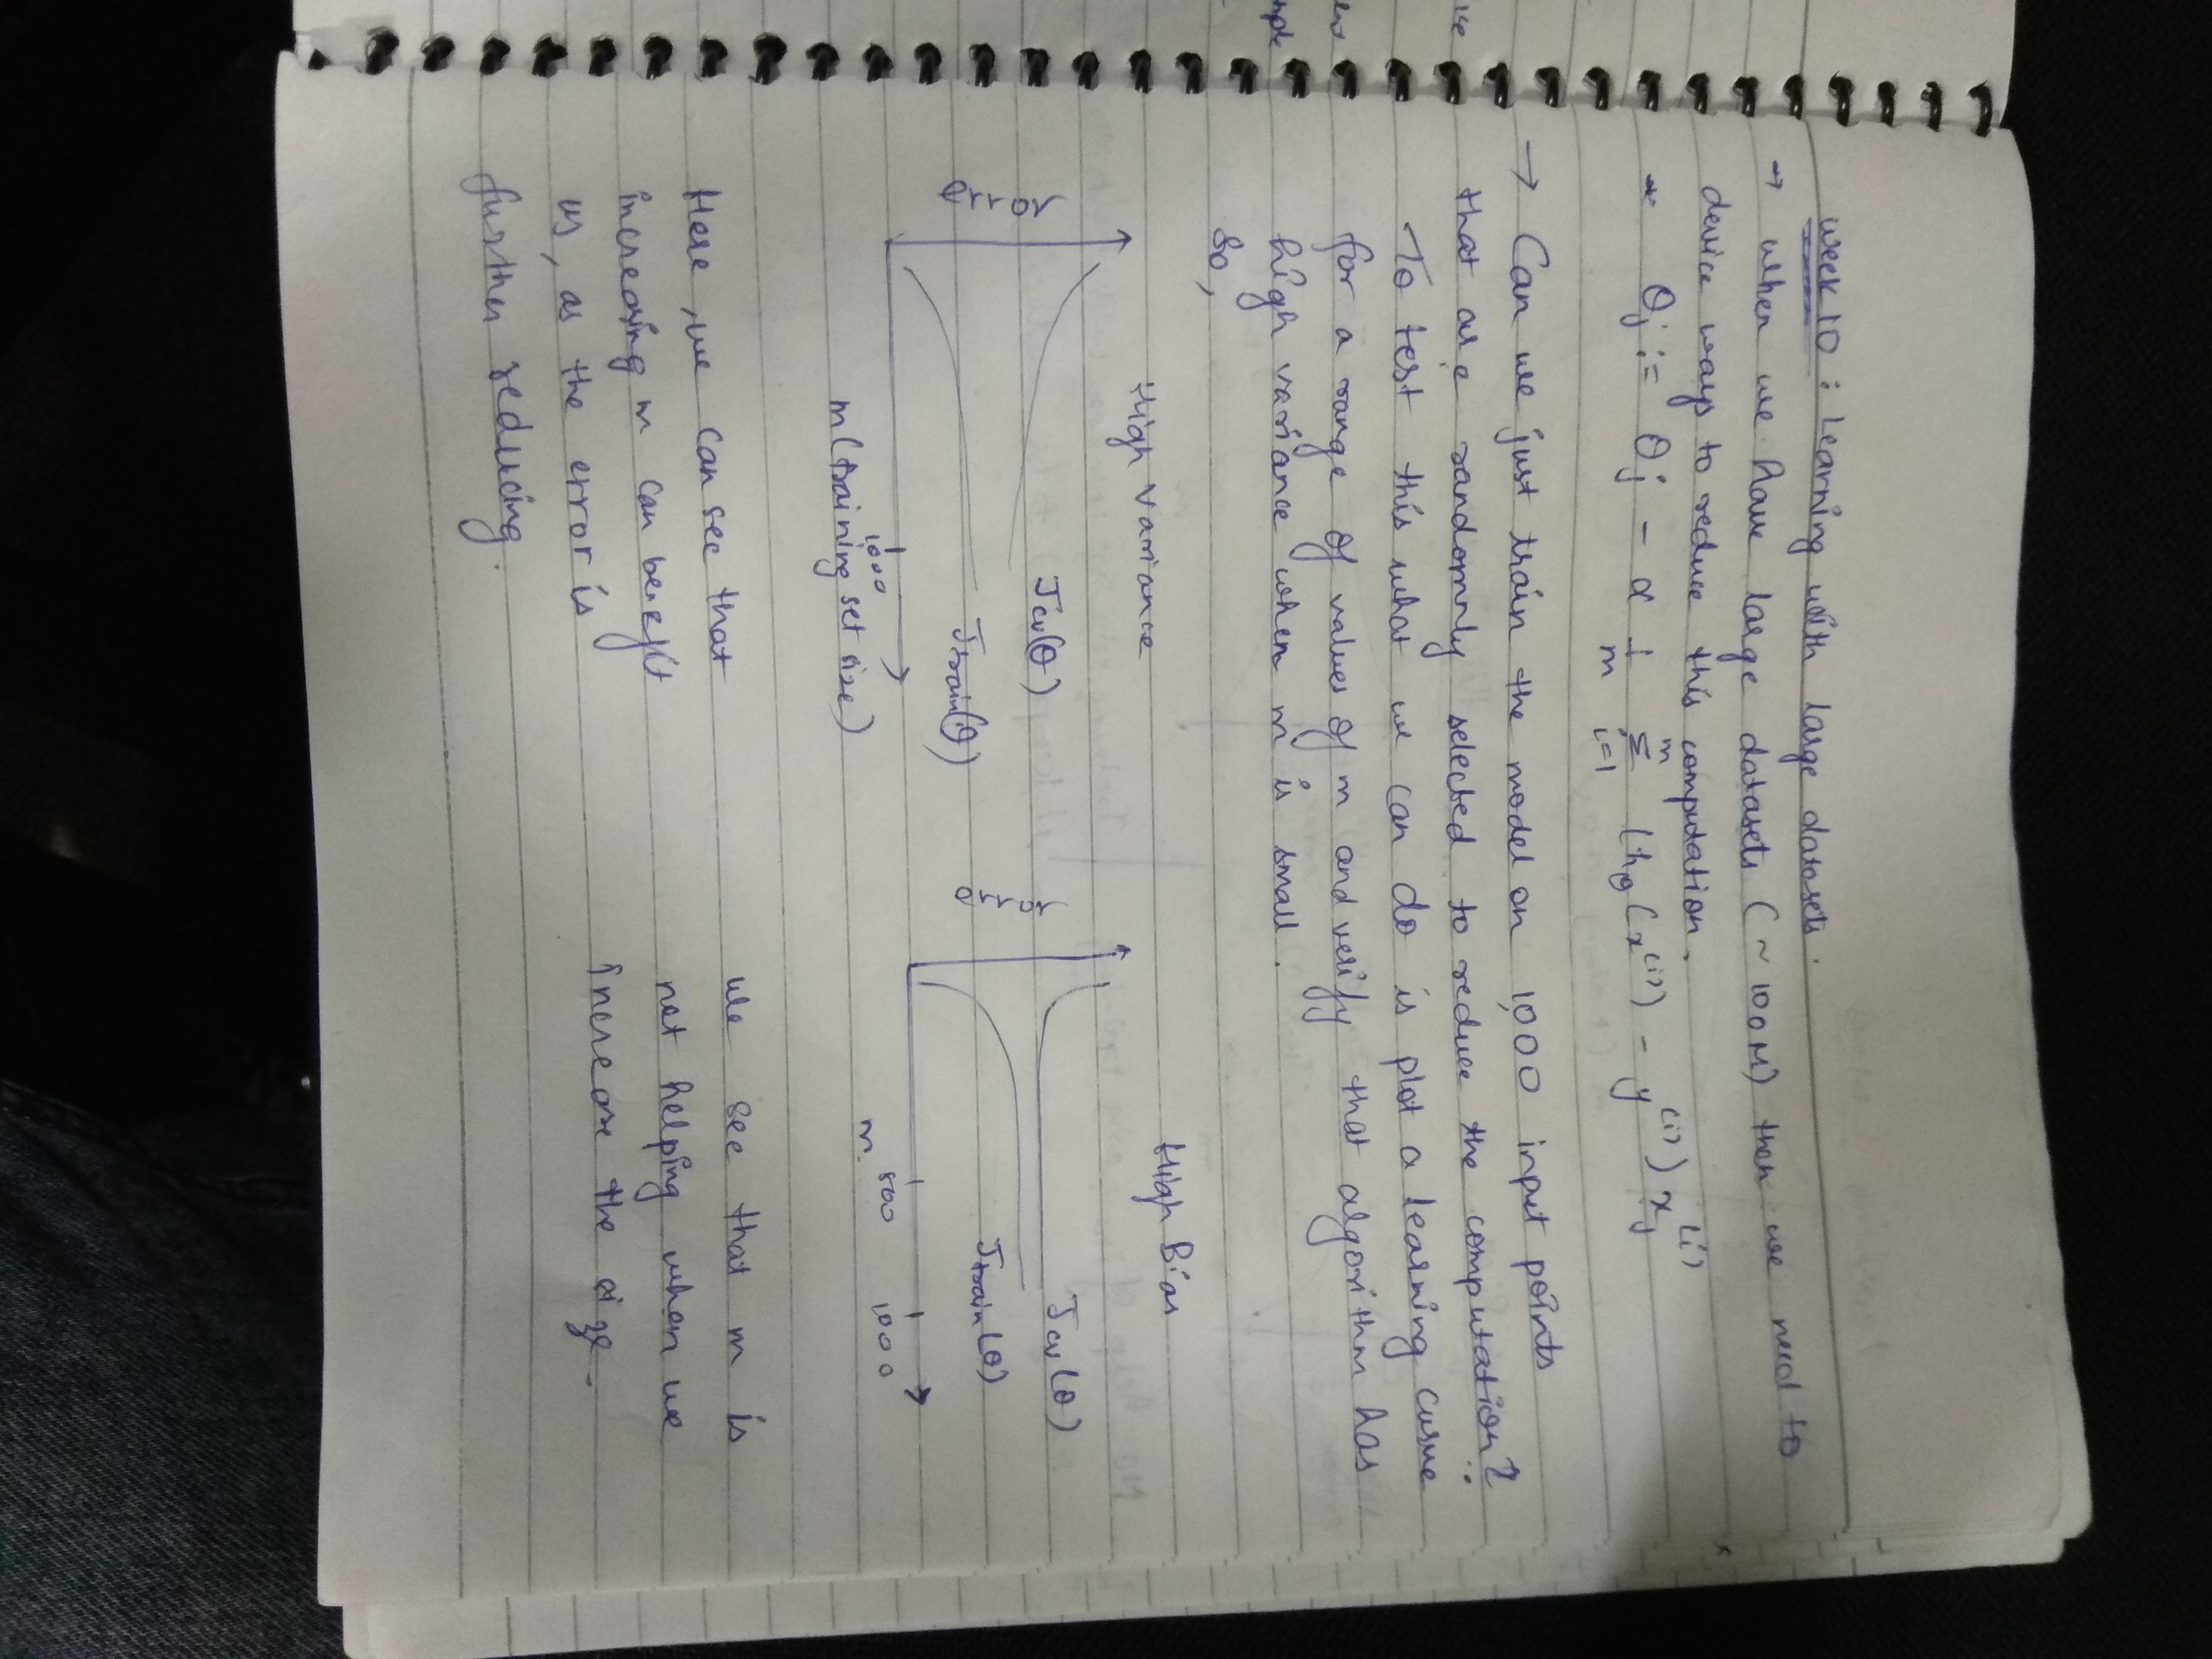 Week 10 : Learning with large datasets.
→ when we have large datasets (~100M) then we need to
device ways to reduce this computation.
→ θj := θj - α 1/m m Σ i=1 (hθ(x(i)) - y(i)) xj(i)
→ Can we just train the model on 1,000 input points
that are randomly selected to reduce the computation?
- To test this what we can do is plot a learning curve
for a range of values of m and verify that algorithm has
high variance when m is small.
So,
High Variance
error
Jcv(θ)
Jtrain(θ)
1000
m (training set size)
High Bias
error
Jcv(θ)
Jtrain(θ)
m. 500 1000
Here, we can see that
increasing m can benefit
us, as the error is
further reducing.
we see that m is
not helping when we
increase the size.